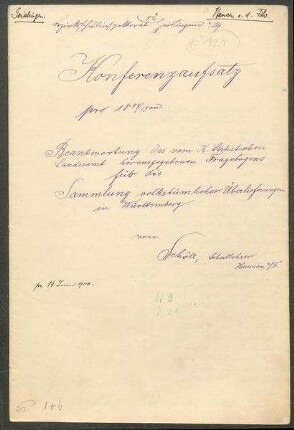 Geislingen.
Hausen a. d. Fils
Konferenzaufsatz
pro 1899/1900.
Beantwortung des vom K. Statistischen
Landesamt herausgegebenen Fragebogens
für die
Sammlung volkstümlicher Überlieferungen
in Württemberg
von
Schöll, Schullehrer
Hausen a/F.
pr. 14 Juni 900.